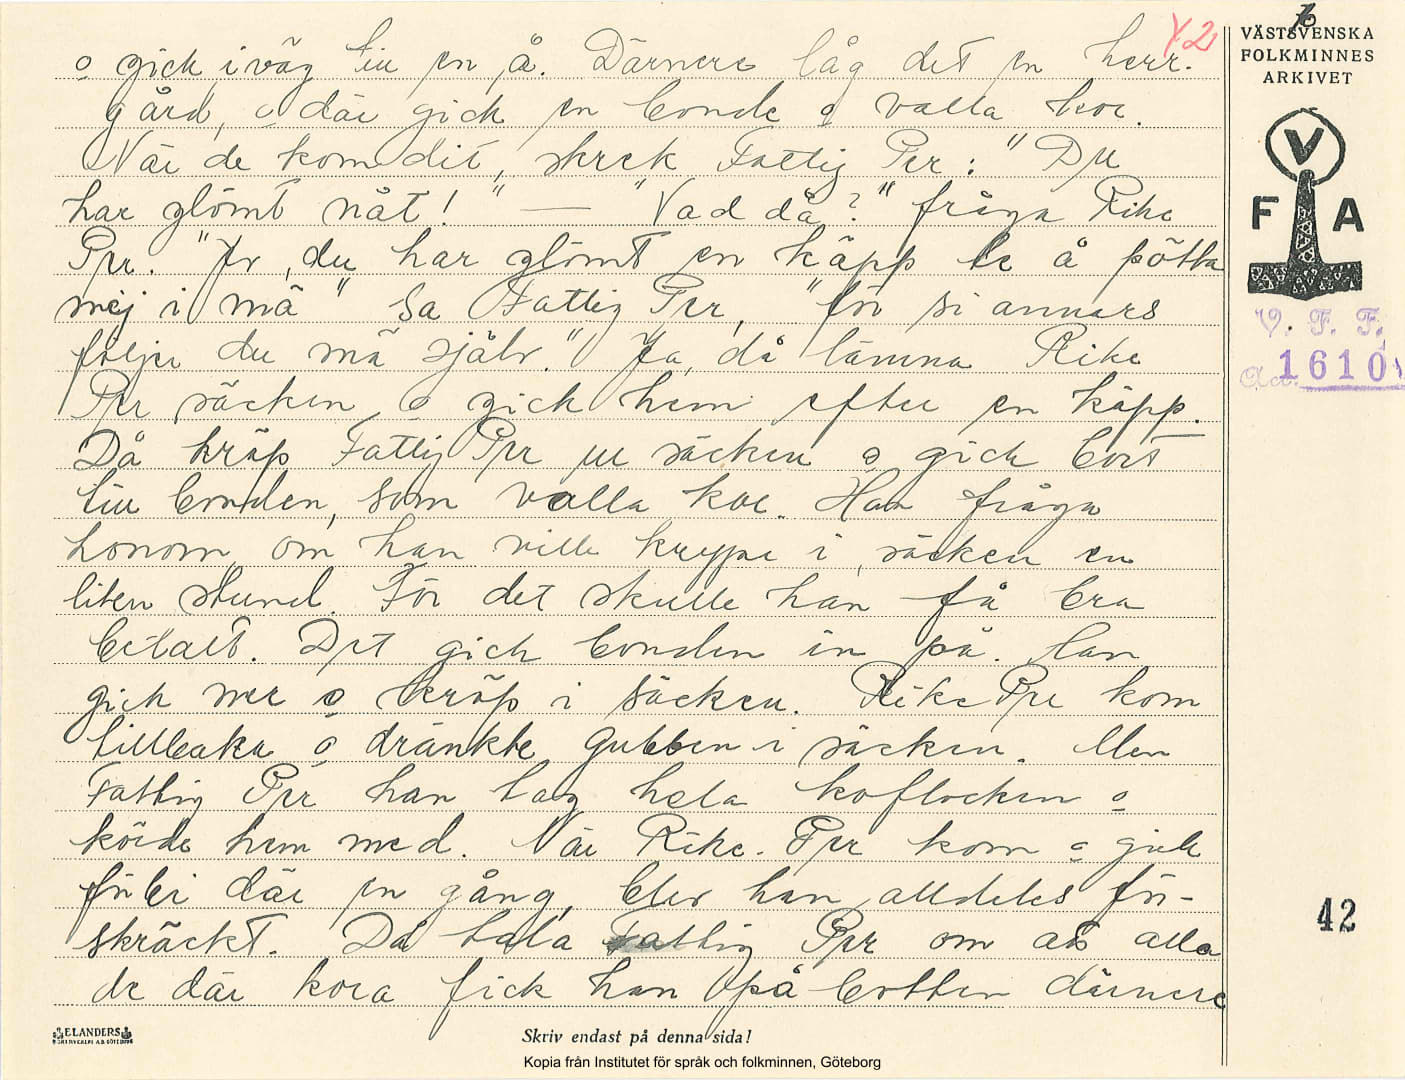 42
o gick iväg till en å. Därnere låg det en herr-
gård, o där gick en bonde o valla kor.
När de kom dit, skrek Fattig Per: "Du
har glömt nåt!" — "Vad då?" fråga Rike
Per. "Jo, du har glömt en käpp te å stötta
mej i mä" sa Fattig Per, "för si annars
följer du mä själv." Ja, då lämna Rike
Per säcken o gick hem efter en käpp.
Då kröp Fattig Per ur säcken o gick bort
till bonden, som valla kor. Han fråga
honom, om han ville krypa i säcken en
liten stund. För det skulle han få bra
betalt. Det gick bonden in på. Han
gick ner o kröp i säcken. Rike Per kom
tillbaka o dränkte gubben i säcken. Men
Fattig Per han tog hela koflocken o
körde hem med. När Rike Per kom o gick
förbi där en gång, blev han alldeles för-
skräckt. Då tala Fattig Per om att alla
de där kora fick han på botten därnere
VÄSTSVENSKA
FOLKMINNES
ARKIVET
V
F A
V. F. F.
Acc. 1610
42
ELANDERS
Skriv endast på denna sida!
Kopia från Institutet för språk och folkminnen, Göteborg